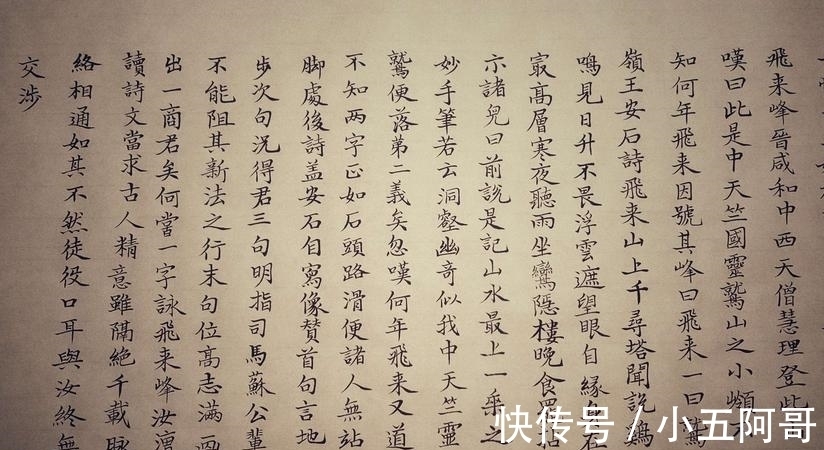 飛来峰晉咸和中西天僧慧理登此
嘆曰此是中天竺國靈鷲山之小嶺
知何年飛来因號其峰曰飛来一曰鷲
嶺王安石詩飛来山上千尋塔聞說鷄
鳴見日升不畏浮雲遮望眼自緣身在
最髙層寒夜聽雨坐鸞隱樓晚食罷拈
示諸兒曰前說是記山水最上一乘之
妙手筆若云洞壑幽奇似我中天竺靈
鷲便落第二義矣忽嘆何年飛来又道
不知两字正如石頭路滑便諸人無站
脚處後詩盖安石自寫像賛首句言地
步次句況得君三句明指司馬蘇公輩
不能阻其新法之行末句位髙志滿画
出一商君矣何嘗一字詠飛来峰汝
讀詩文當求古人精意雖隔絕千載脉
絡相通如其不然徒役口耳與汝終無
交涉
快传号 / 小五阿哥